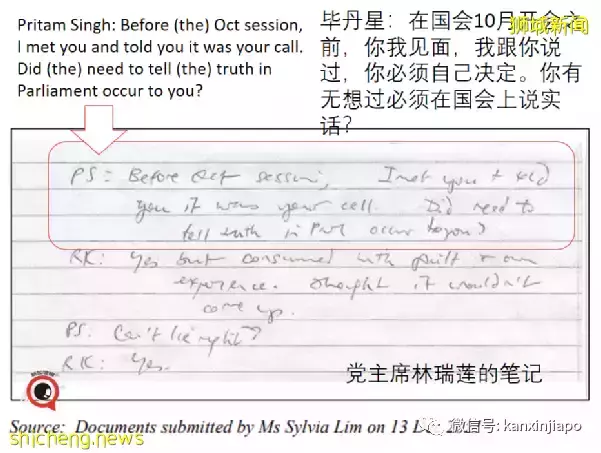 狮城新闻
Pritam Singh: Before (the) Oct session,
I met you and told you it was your call.
Did (the) need to tell (the) truth in
Parliament occur to you?
毕丹星：在国会10月开会之
前，你我见面，我跟你说
过，你必须自己决定。你有
无想过必须在国会上说实
话？
PS: Before Oct session, I met you + told
you it was your call. Did need to
tell truth in Parl occur to you?
RK: Yes but consumed with guilt + own
experience. Thought it wouldn't
come up.
PS: Can't lie right?
RK: Yes.
党主席林瑞莲的笔记
微信号: kanxinjiapo
Source: Documents submitted by Ms Sylvia Lim on 13
shicheng.news